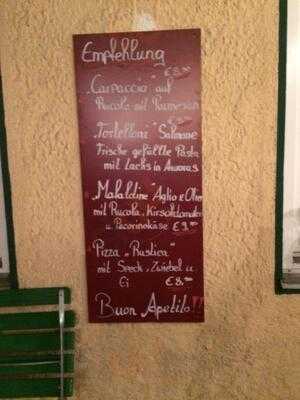 Empfehlung
„Carpaccio" auf
Rucola mit Parmesan
„Tortelloni" Salmone
Frische gefüllte Pasta
mit Lachs in
Aglio e Olio
mit Rucola, Kirschtomaten
u. Pecorinokäse €9.
Pizza „Rustica"
mit Speck, Zwiebel u
Ei €8.
Buon Apetito!!